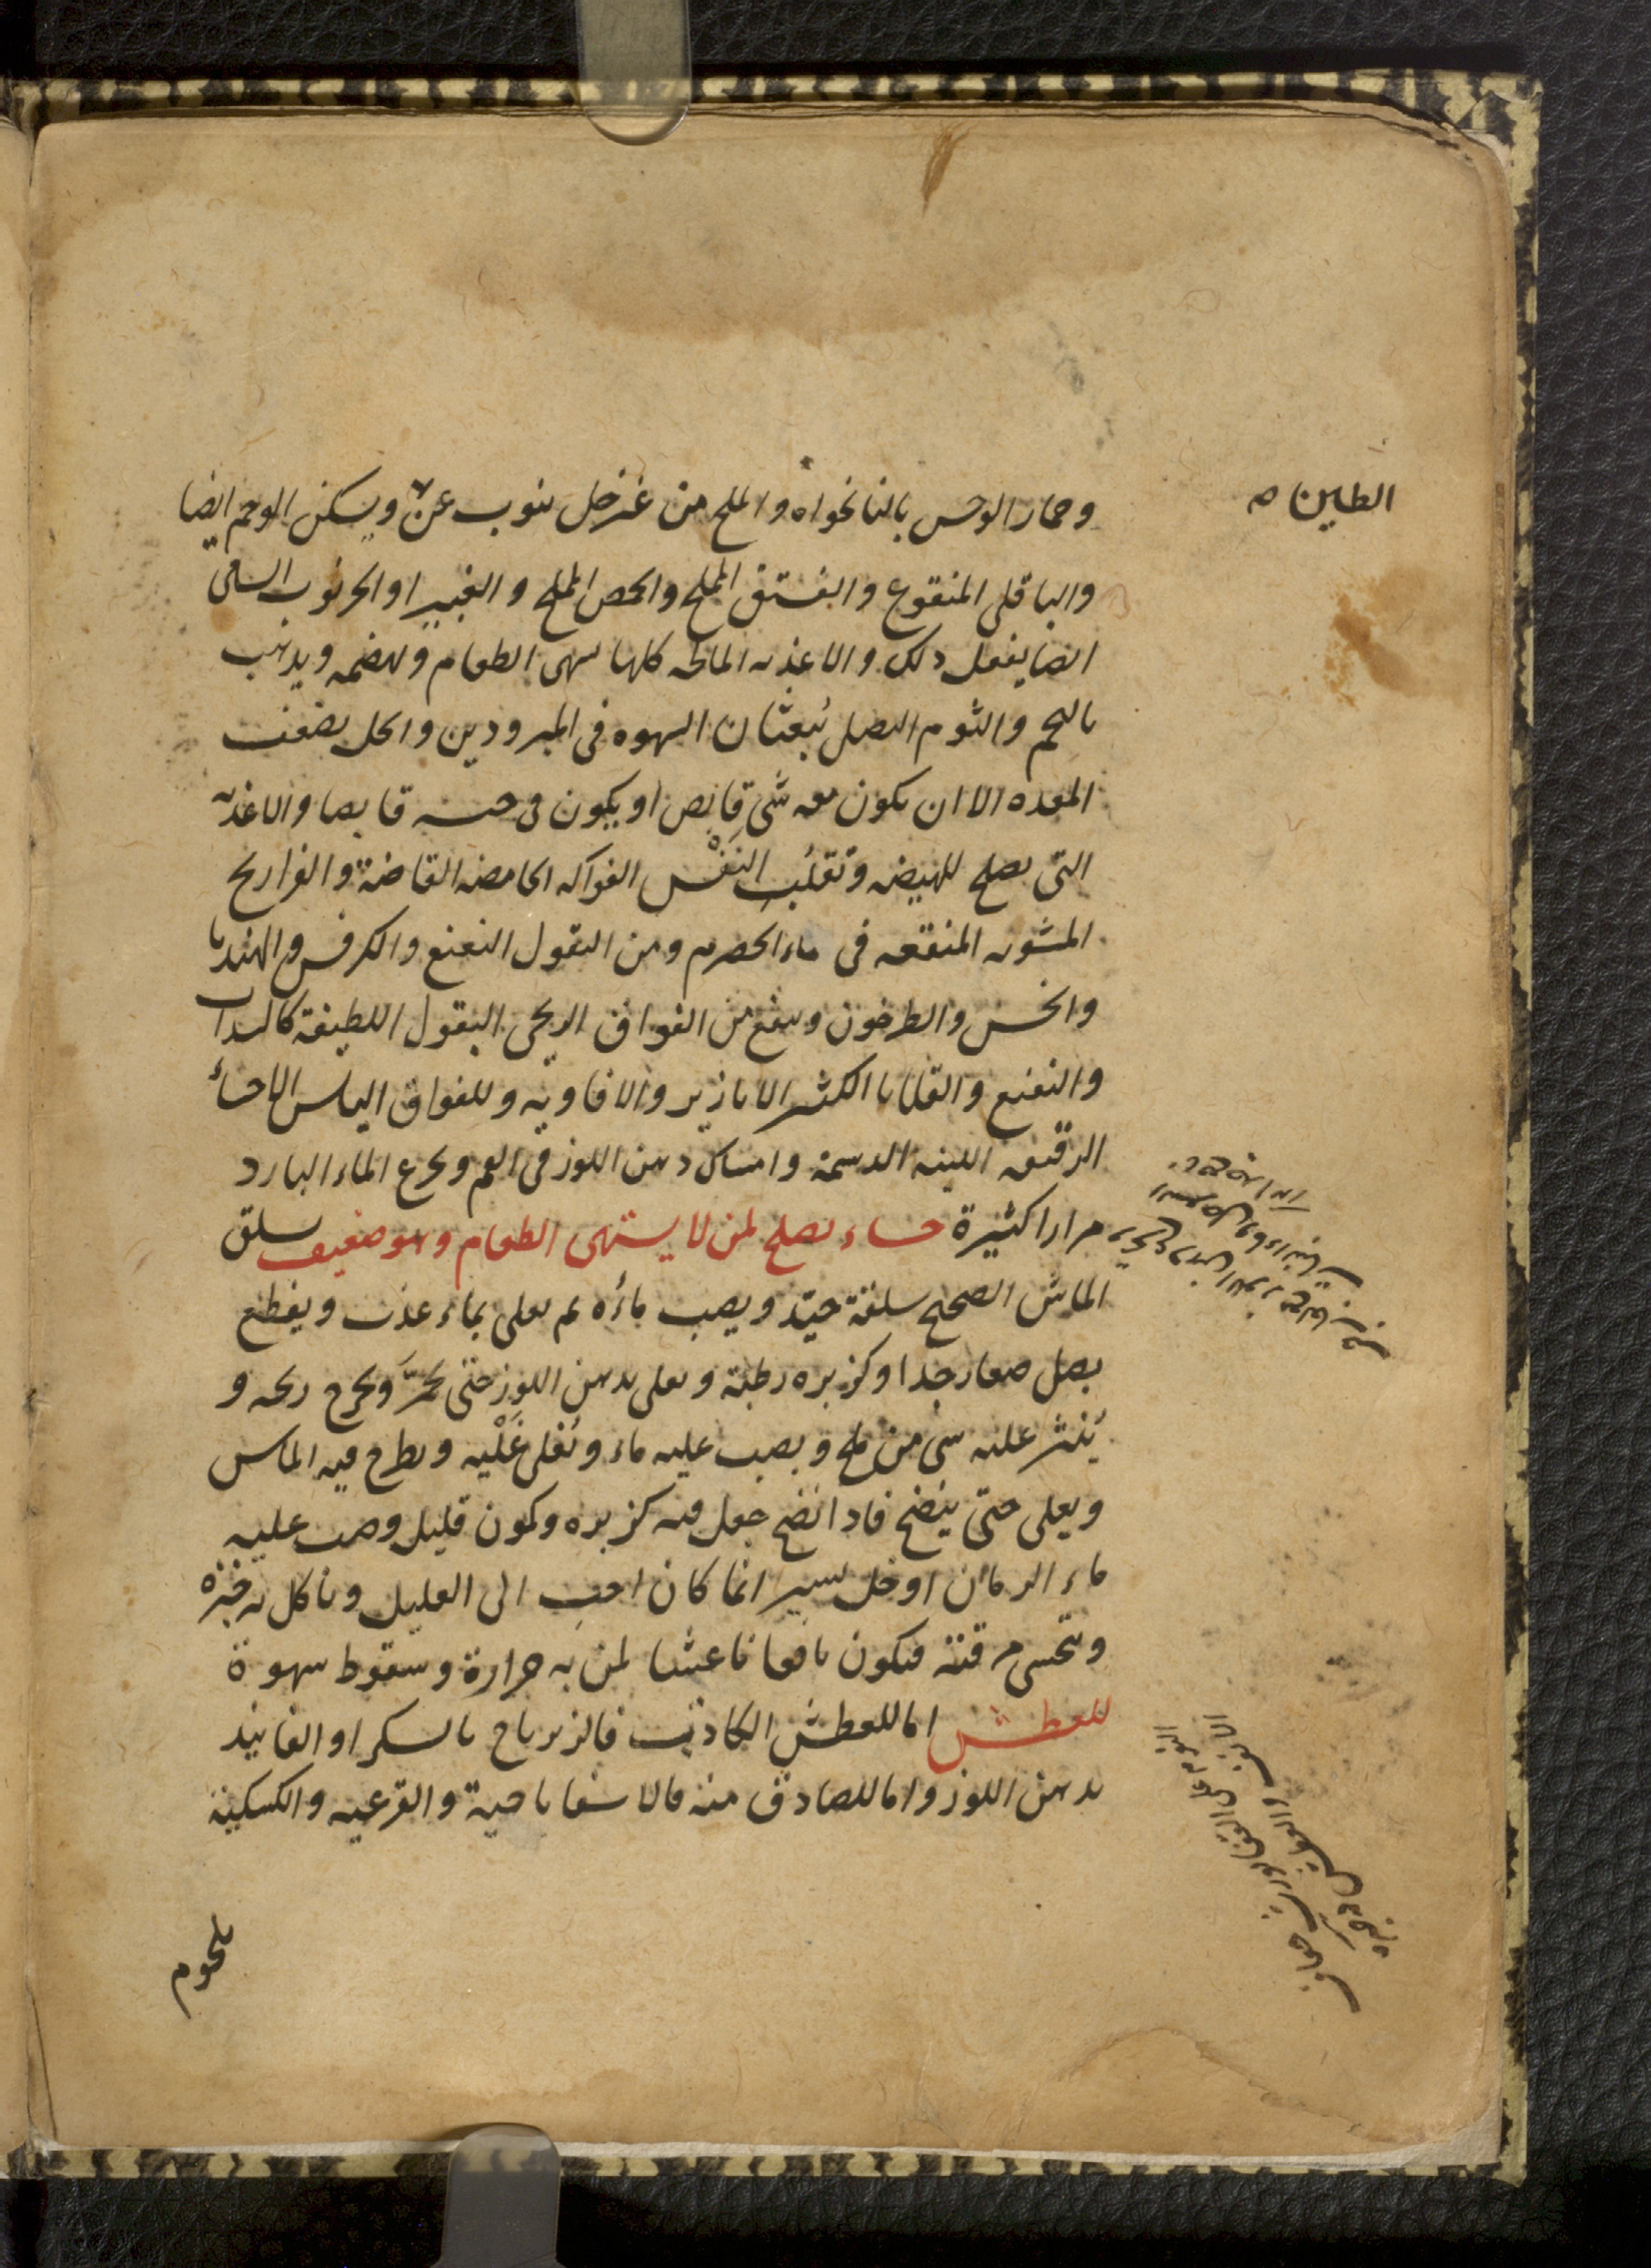 الطين
وحمار الوحس بالنانخواه والملح من غير خل ينوب عن ويسكن الوحم ايضا
والباقلى المنقوع والفستق المملح والحمص المملح والغبيرا والخرنوب
ايضا يفعل ذلك والاغذيه المالحه كلها تشهى الطعام وتهضمه ويذهب
بالبخم والثوم البصل يُبعثان الشهوه فى المبرودين والخل يضعف
المعده الا ان يكون معه شئ قابض او يكون فى جنسه قابضا والاغذيه
التى يصلح للهيضه وتقلُّب النَفْس الفواكه الحامضه القابضة والفراريج
المشويه المنقعه فى ماء الحصرم ومن البقول النعنع والكرفس والهندبا
والخس والطرخون وينفع من الفواق الريحى البقول اللطيفة كالسداب
والنعنع والقلايا الكثير الابازير والافاويه وللفواق اليابس الاحساء
الرقيقه اللينه الدسمة وامساك دهن اللوز فى الفم وتجرع الماء البارد
مرارا كثيرة حساء يصلح لمن لا يشتهى الطعام وهو ضعيف يسلق
الماش الصحيح سلقة جيّد ويصب ماؤه ثم يغلى بماء عذب ويقطع
بصل صغار جدا وكزبره رطبة ويغلى بدهن اللوز حتى يحمرَّ ويخرج ريحه و
يُنثر عليه شى من ملح ويصب عليه ماء ويُغلى غَلْيه ويطرح فيه الماش
ويغلى حتى ينضج فاذا نضج جعل فيه كزبره وكمون قليل وصب عليه
ماء الرمان او خل يسير انما كان احب الى العليل وياكل به خبزه
ويتحسى مرقته فيكون نافعا ناعشا لمن به حرارة وسقوط شهوة
للعطش اما للعطش الكاذب فالزيرباج بالسكر او الفانيذ
بدهن اللوز واما للصادق منه فالاسفاناخية والقرعيه والكشكية